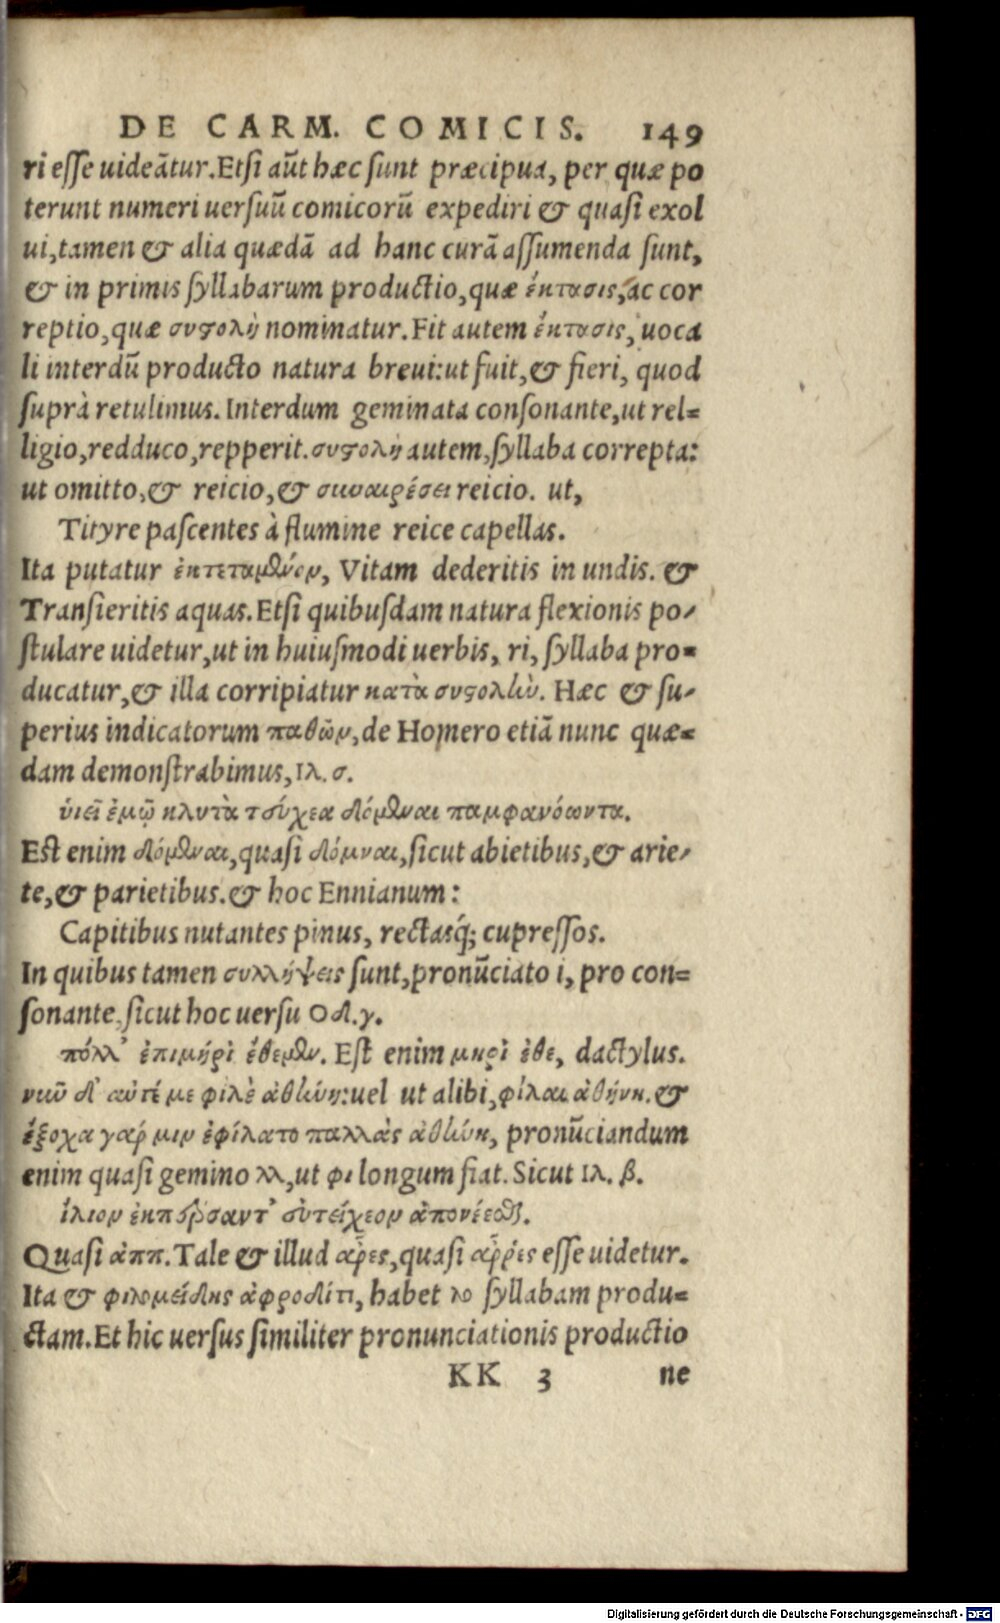 DE CARM. COMICIS. 149
ri esse uideãtur. Etsi aũt hæc sunt præcipua, per quæ po
terunt numeri uersuũ comicorũ expediri & quasi exol
ui, tamen & alia quædã ad hanc curã assumenda sunt,
& in primis syllabarum productio, quæ ἔκτασις, ac cor
reptio, quæ συϛολὴ nominatur. Fit autem ἔκτασις, uoca
li interdũ producto natura breui: ut fuit, & fieri, quod
suprà retulimus. Interdum geminata consonante, ut rel=
ligio, redduco, repperit. συϛολὴ autem, syllaba correpta:
ut omitto, & reicio, & συναιρέσει reicio. ut,
Tityre pascentes à flumine reice capellas.
Ita putatur ἐκτεταμένον, Vitam dederitis in undis. &
Transieritis aquas. Etsi quibusdam natura flexionis po-
stulare uidetur, ut in huiusmodi uerbis, ri, syllaba pro=
ducatur, & illa corripiatur κατὰ συϛολὴν. Hæc & su-
perius indicatorum παθῶν, de Homero etiã nunc quæ=
dam demonstrabimus, Ιλ. σ.
ὑιεῖ ἐμῷ κλυτὰ τεύχεα δόμεναι παμφανόωντα.
Est enim δόμεναι, quasi δόμναι, sicut abietibus, & arie-
te, & parietibus. & hoc Ennianum:
Capitibus nutantes pinus, rectasq́; cupressos.
In quibus tamen συλλήψεις sunt, pronũciato i, pro con=
sonante, sicut hoc uersu Οδ. γ.
πόλλ' ἐπιμήρὶ ἔθεμεν. Est enim μηρὶ ἐθε, dactylus.
νῦν δ' αὐτέ με φιλὲ ἀθήνη: uel ut alibi, φίλαι ἀθήνη. &
ἔξοχα γαρ μιν ἐφίλατο παλλὰς ἀθήνη, pronũciandum
enim quasi gemino λλ, ut φι longum fiat. Sicut Ιλ. β.
ἴλιον ἐκπέρσαντ' εὐτείχεον ἀπονέεσθαι.
Quasi ἀππ. Tale & illud ἆρες, quasi ἆρρες esse uidetur.
Ita & φιλομείδης ἀφροδίτι, habet λο syllabam produ=
ctam. Et hic uersus similiter pronunciationis productio
KK 3 ne
Digitalisierung gefördert durch die Deutsche Forschungsgemeinschaft - DFG